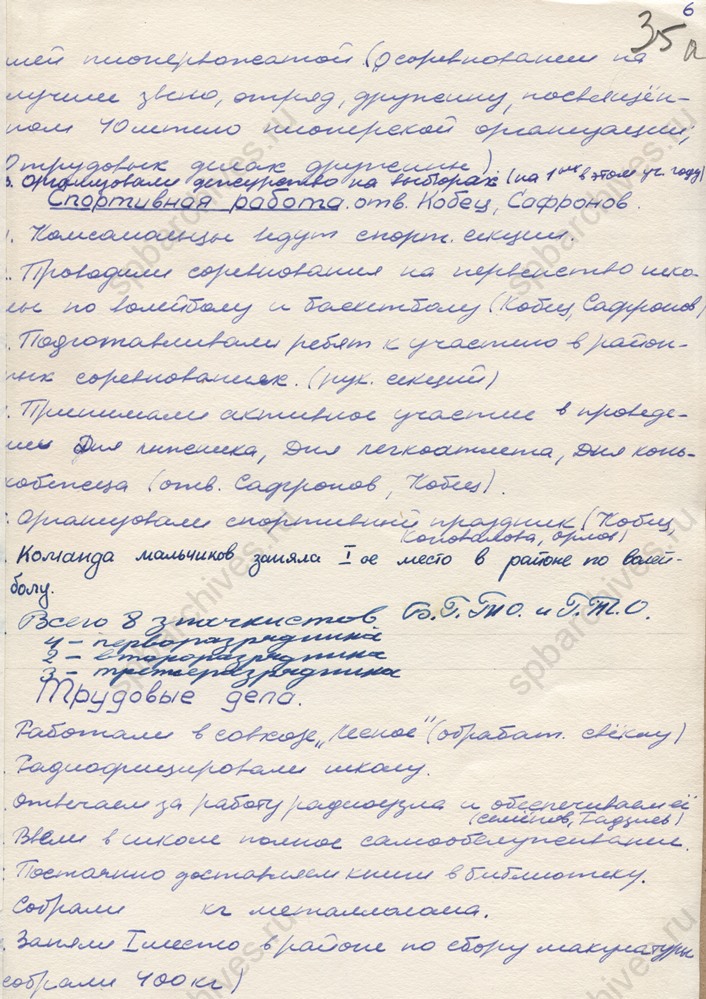 6
35а
шей пионервожатой (о соревновании на
лучшие звено, отряд, дружину, посвящён-
ном 40летию пионерской организации,
О трудовых делах дружины)
Организовали дежурство на выборах (на 1ых в этом уч. году)
Спортивная работа. отв. Кобец, Сафронов.
Комсомольцы ведут спорт. секции.
Проводили соревнования на первенство шко-
лы по волейболу и баскетболу (Кобец, Сафронов)
Подготавливали ребят к участию в район-
ных соревнованиях. (рук. секций)
Принимали активное участие в проведе-
нии Дня лыжника, Дня легкоатлета, Дня конь-
кобежца (отв. Сафронов, Кобец).
Организовали спортивный праздник (Кобец,
Коновалова, Орлов)
Команда мальчиков заняла I ое место в районе по волей-
болу.
Всего 8 значкистов Б.Г.Т.О. и Г.Т.О.
4 – перворазрядника
2 – второразрядника
3 – третьеразрядника
Трудовые дела.
Работали в совхозе „Лесное" (обрабат. свёклу)
Радиофицировали школу.
Отвечаем за работу радиоузла и обеспечиваем её
(Семёнов, )
Ввели в школе полное самообслуживание.
Постоянно доставляем книги в библиотеку.
Собрали кг металлолома.
Заняли I место в районе по сбору макулатуры
собрали 400 кг)
spbarchives.ru
spbarchives.ru
spbarchives.ru
spbarchives.ru
spbarchives.ru
spbarchives.ru